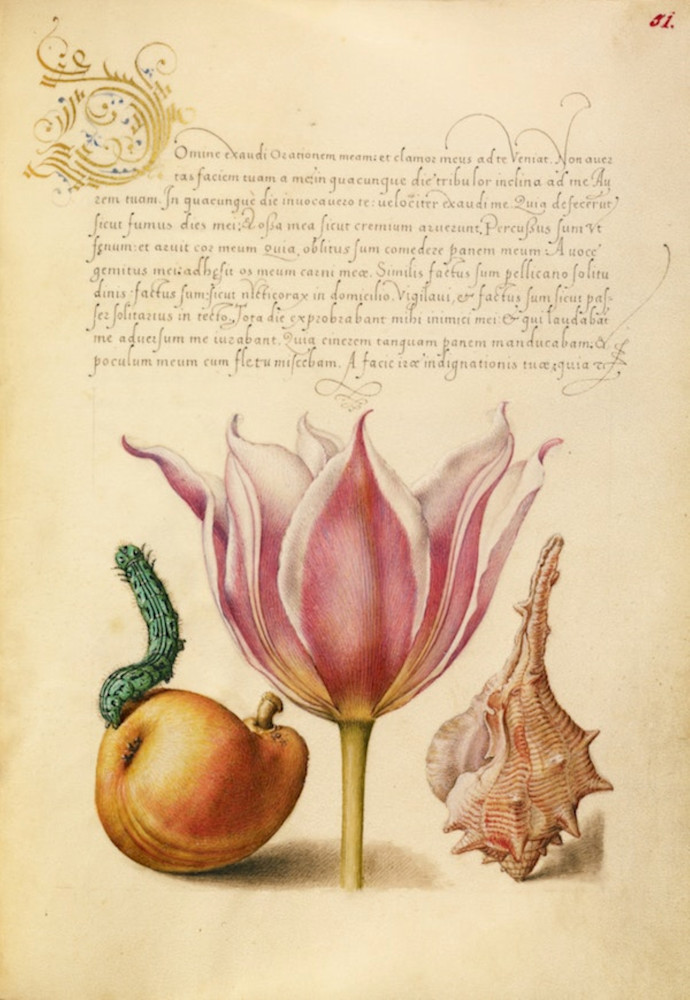 51.
Domine exaudi Orationem meam: et clamor meus ad te Veniat. Non auer
tas faciem tuam a me: in quacunque die tribulor inclina ad me Au
rem tuam. In quacunque die inuocauero te: uelociter exaudi me. Quia defecerūt
sicut fumus dies mei: & ossa mea sicut cremium aruerunt. Percussus sum Vt
fęnum: et aruit cor meum quia, oblitus sum comedere panem meum. A uoce
gemitus mei: adhęsit os meum carni meæ. Similis factus sum pellicano solitu
dinis: factus sum: sicut nicticorax in domicilio. Vigilaui, & factus sum sicut pas-
ser solitarius in tecto. Tota die exprobrabant mihi inimici mei: & qui laudabāt
me aduersum me iurabant. Quia cinerem tanquam panem manducabam: &
poculum meum cum fletu miscebam. A facie iræ indignationis tuæ: quia